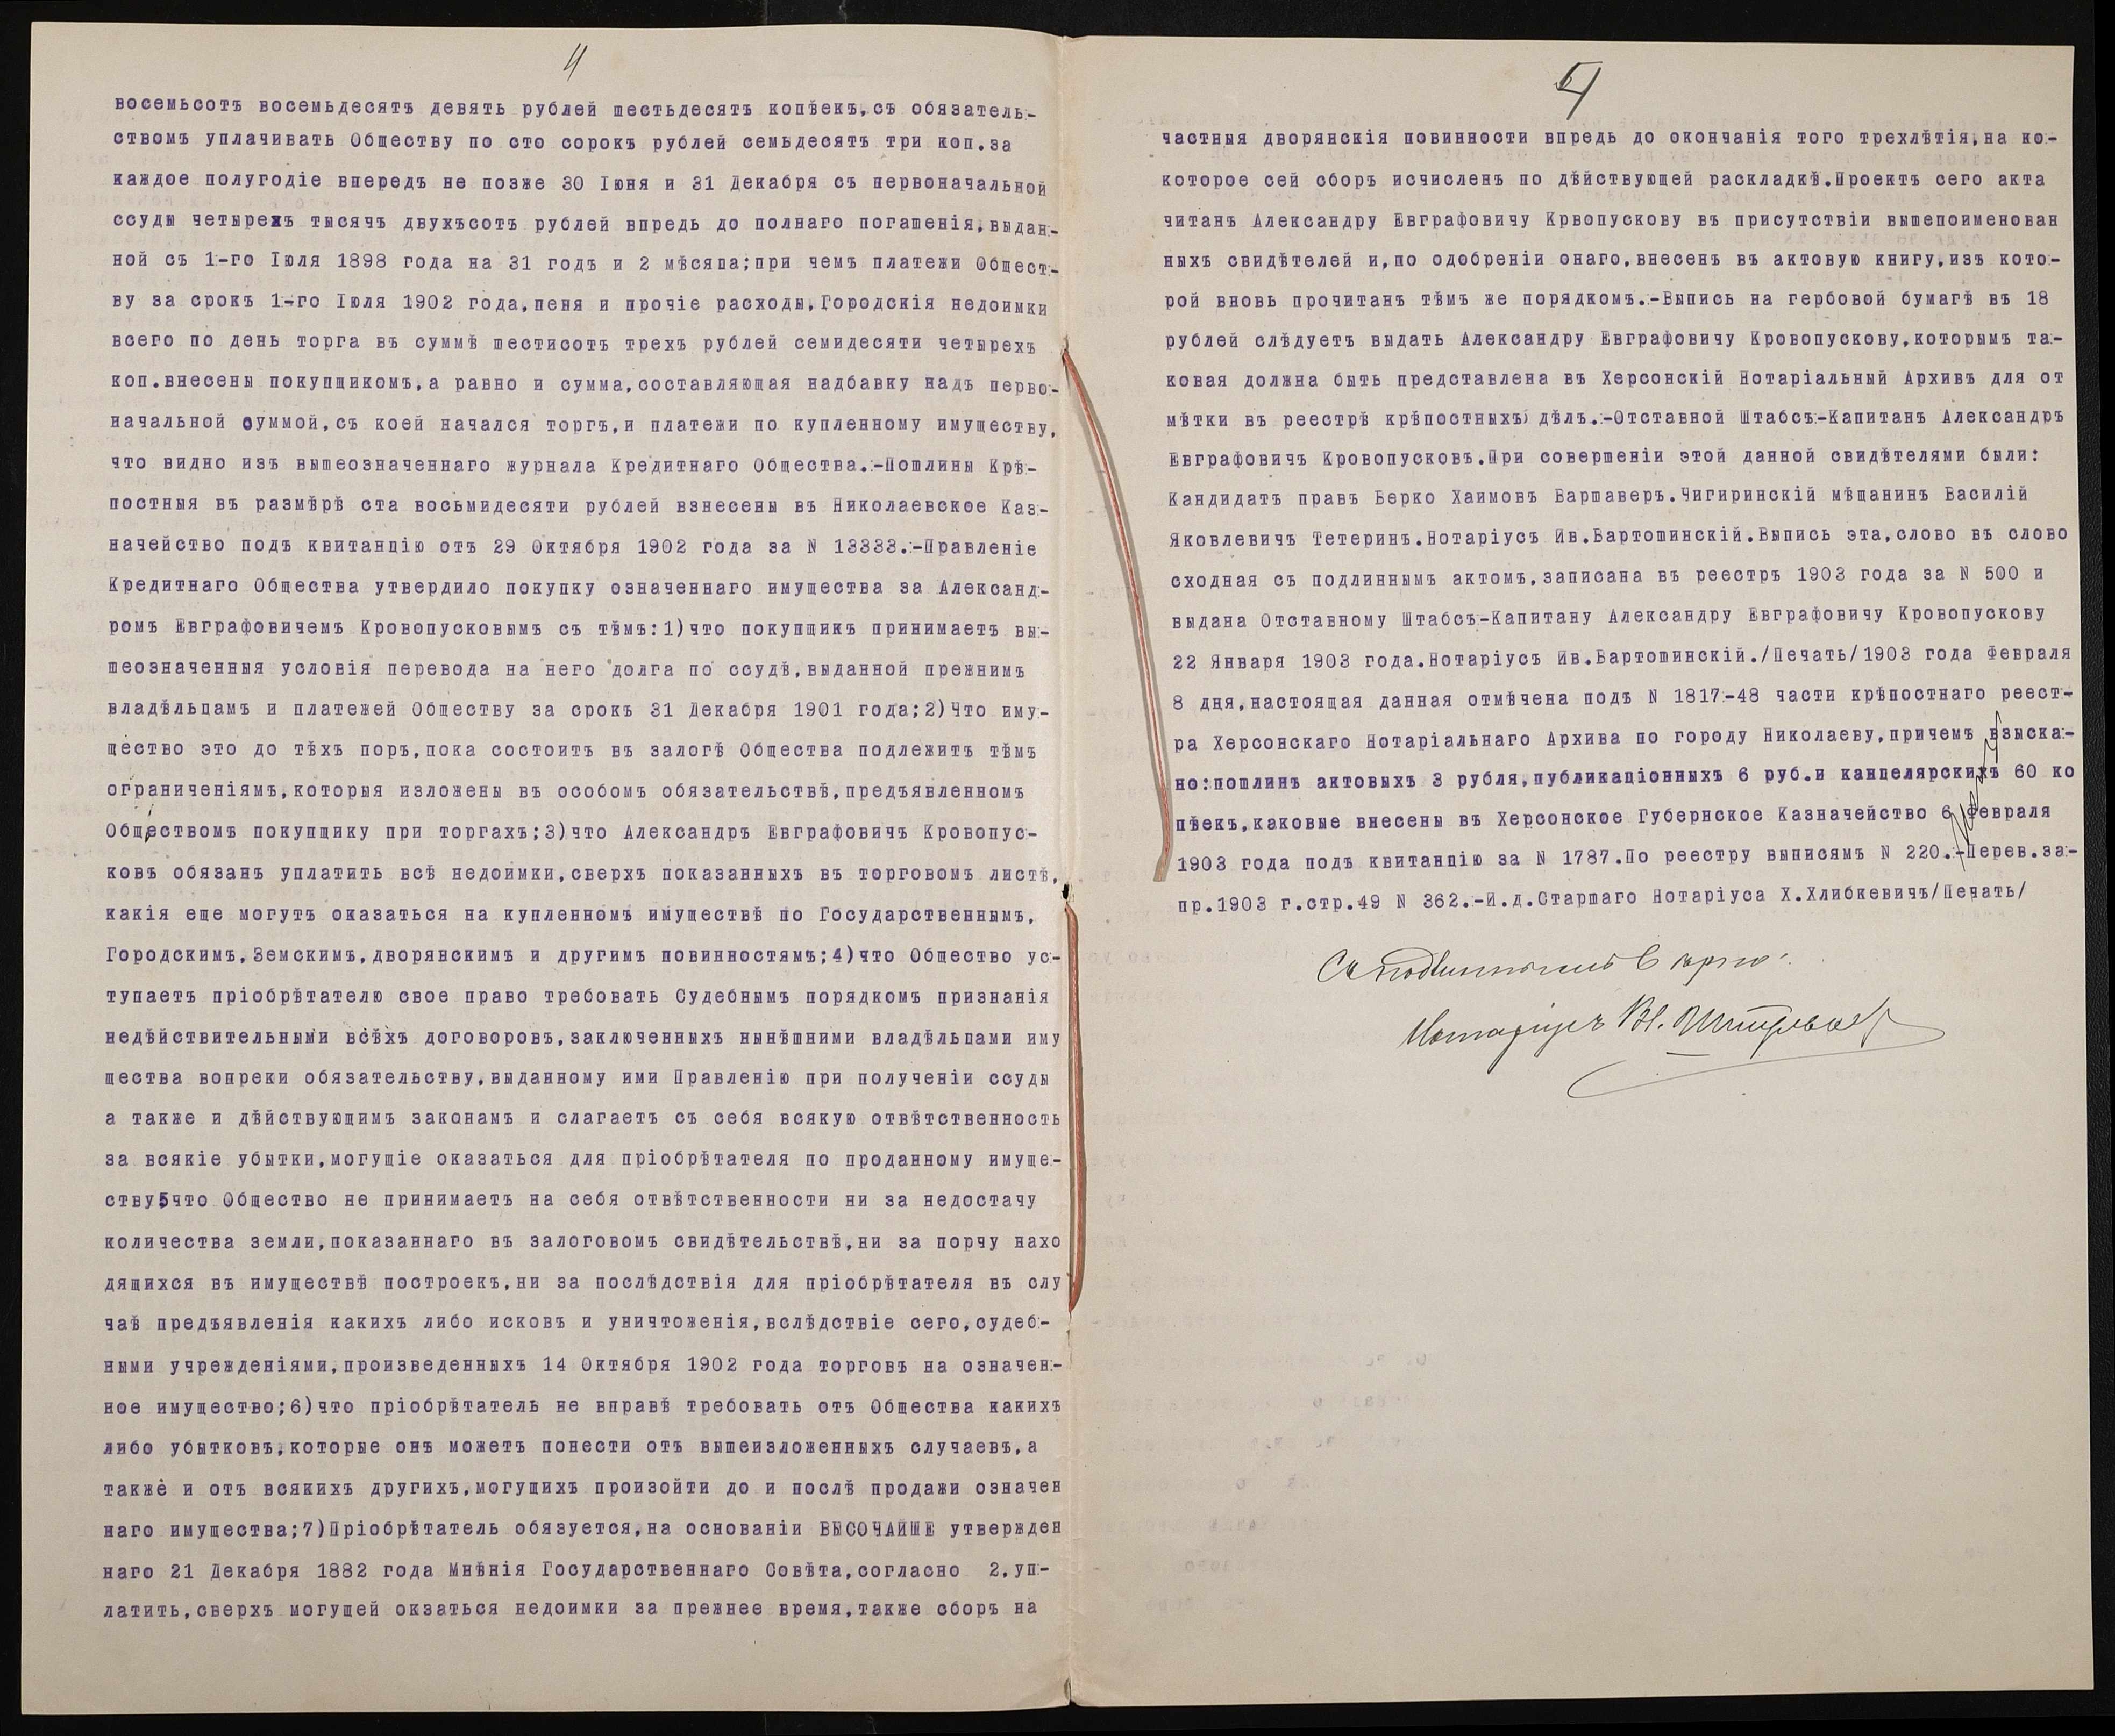 4
восемьсотъ восемьдесятъ девять рублей шестьдесятъ копѣекъ,съ обязатель-
ствомъ уплачивать Обществу по сто сорокъ рублей семьдесятъ три коп.за
каждое полугодіе впередъ не позже 30 Іюня и 31 Декабря съ первоначальной
ссуды четырехъ тысячъ двухъсотъ рублей впредь до полнаго погашенія,выдан-
ной съ 1-го Іюля 1898 года на 31 годъ и 2 мѣсяца;при чемъ платежи Общест-
ву за срокъ 1-го Іюля 1902 года,пеня и прочіе расходы,Городскія недоимки
всего по день торга въ суммѣ шестисотъ трехъ рублей семидесяти четырехъ
коп.внесены покупщикомъ,а равно и сумма,составляющая надбавку надъ перво-
начальной суммой,съ коей начался торгъ,и платежи по купленному имуществу,
что видно изъ вышеозначеннаго журнала Кредитнаго Общества.-Пошлины Крѣ-
постныя въ размѣрѣ ста восьмидесяти рублей взнесены въ Николаевское Каз-
начейство подъ квитанцію отъ 29 Октября 1902 года за N 13333.-Правленіе
Кредитнаго Общества утвердило покупку означеннаго имущества за Александ-
ромъ Евграфовичемъ Кровопусковымъ съ тѣмъ:1)что покупщикъ принимаетъ вы-
шеозначенныя условія перевода на него долга по ссудѣ,выданной прежнимъ
владѣльцамъ и платежей Обществу за срокъ 31 Декабря 1901 года;2)Что иму-
щество это до тѣхъ поръ,пока состоитъ въ залогѣ Общества подлежитъ тѣмъ
ограниченіямъ,которыя изложены въ особомъ обязательствѣ,предъявленномъ
Обществомъ покупщику при торгахъ;3)что Александръ Евграфовичъ Кровопус-
ковъ обязанъ уплатить всѣ недоимки,сверхъ показанныхъ въ торговомъ листѣ,
какія еще могутъ оказаться на купленномъ имуществѣ по Государственнымъ,
Городскимъ,Земскимъ,дворянскимъ и другимъ повинностямъ;4)что Общество ус-
тупаетъ пріобрѣтателю свое право требовать Судебнымъ порядкомъ признанія
недѣйствительными всѣхъ договоровъ,заключенныхъ нынѣшними владѣльцами иму
щества вопреки обязательству,выданному ими Правленію при полученіи ссуды
а также и дѣйствующимъ законамъ и слагаетъ съ себя всякую отвѣтственность
за всякіе убытки,могущіе оказаться для пріобрѣтателя по проданному имуще-
ству5что Общество не принимаетъ на себя отвѣтственности ни за недостачу
количества земли,показаннаго въ залоговомъ свидѣтельствѣ,ни за порчу нахо
дящихся въ имуществѣ построекъ,ни за послѣдствія для пріобрѣтателя въ слу
чаѣ предъявленія какихъ либо исковъ и уничтоженія,вслѣдствіе сего,судеб-
ными учрежденіями,произведенныхъ 14 Октября 1902 года торговъ на означен-
ное имущество;6)что пріобрѣтатель не вправѣ требовать отъ Общества какихъ
либо убытковъ,которые онъ можетъ понести отъ вышеизложенныхъ случаевъ,а
также и отъ всякихъ другихъ,могущихъ произойти до и послѣ продажи означен
наго имущества;7)Пріобрѣтатель обязуется,на основаніи ВЫСОЧАЙШЕ утвержден
наго 21 Декабря 1882 года Мнѣнія Государственнаго Совѣта,согласно 2,уп-
латить,сверхъ могущей окзаться недоимки за прежнее время,также сборъ на
5
частныя дворянскія повинности впредь до окончанія того трехлѣтія,на ко-
которое сей сборъ исчисленъ по дѣйствующей раскладкѣ.Проектъ сего акта
читанъ Александру Евграфовичу Крвопускову въ присутствіи вышепоименован
ныхъ свидѣтелей и,по одобреніи онаго,внесенъ въ актовую книгу,изъ кото-
рой вновь прочитанъ тѣмъ же порядкомъ.-Выпись на гербовой бумагѣ въ 18
рублей слѣдуетъ выдать Александру Евграфовичу Кровопускову,которымъ та-
ковая должна быть представлена въ Херсонскій Нотаріальный Архивъ для от
мѣтки въ реестрѣ крѣпостныхъ дѣлъ.-Отставной Штабсъ-Капитанъ Александръ
Евграфовичъ Кровопусковъ.При совершеніи этой данной свидѣтелями были:
Кандидатъ правъ Берко Хаимовъ Варшаверъ.Чигиринскій мѣщанинъ Василій
Яковлевичъ Тетеринъ.Нотаріусъ Ив.Бартошинскій.Выпись эта,слово въ слово
сходная съ подлиннымъ актомъ,записана въ реестръ 1903 года за N 500 и
выдана Отставному Штабсъ-Капитану Александру Евграфовичу Кровопускову
22 Января 1903 года.Нотаріусъ Ив.Бартошинскій./Печать/1903 года Февраля
8 дня,настоящая данная отмѣчена подъ N 1817-48 части крѣпостнаго реест-
ра Херсонскаго Нотаріальнаго Архива по городу Николаеву,причемъ взыска-
но:пошлинъ актовыхъ 3 рубля,публикаціонныхъ 6 руб.и канцелярскихъ 60 ко
пѣекъ,каковые внесены въ Херсонское Губернское Казначейство 6 Февраля
1903 года подъ квитанцію за N 1787.По реестру выписямъ N 220.-Перев.за-
пр.1903 г.стр.49 N 362.-И.д.Старшаго Нотаріуса Х.Хлибкевичъ/Печать/
Съ подлиннымъ вѣрно:
Нотаріусъ Вл.